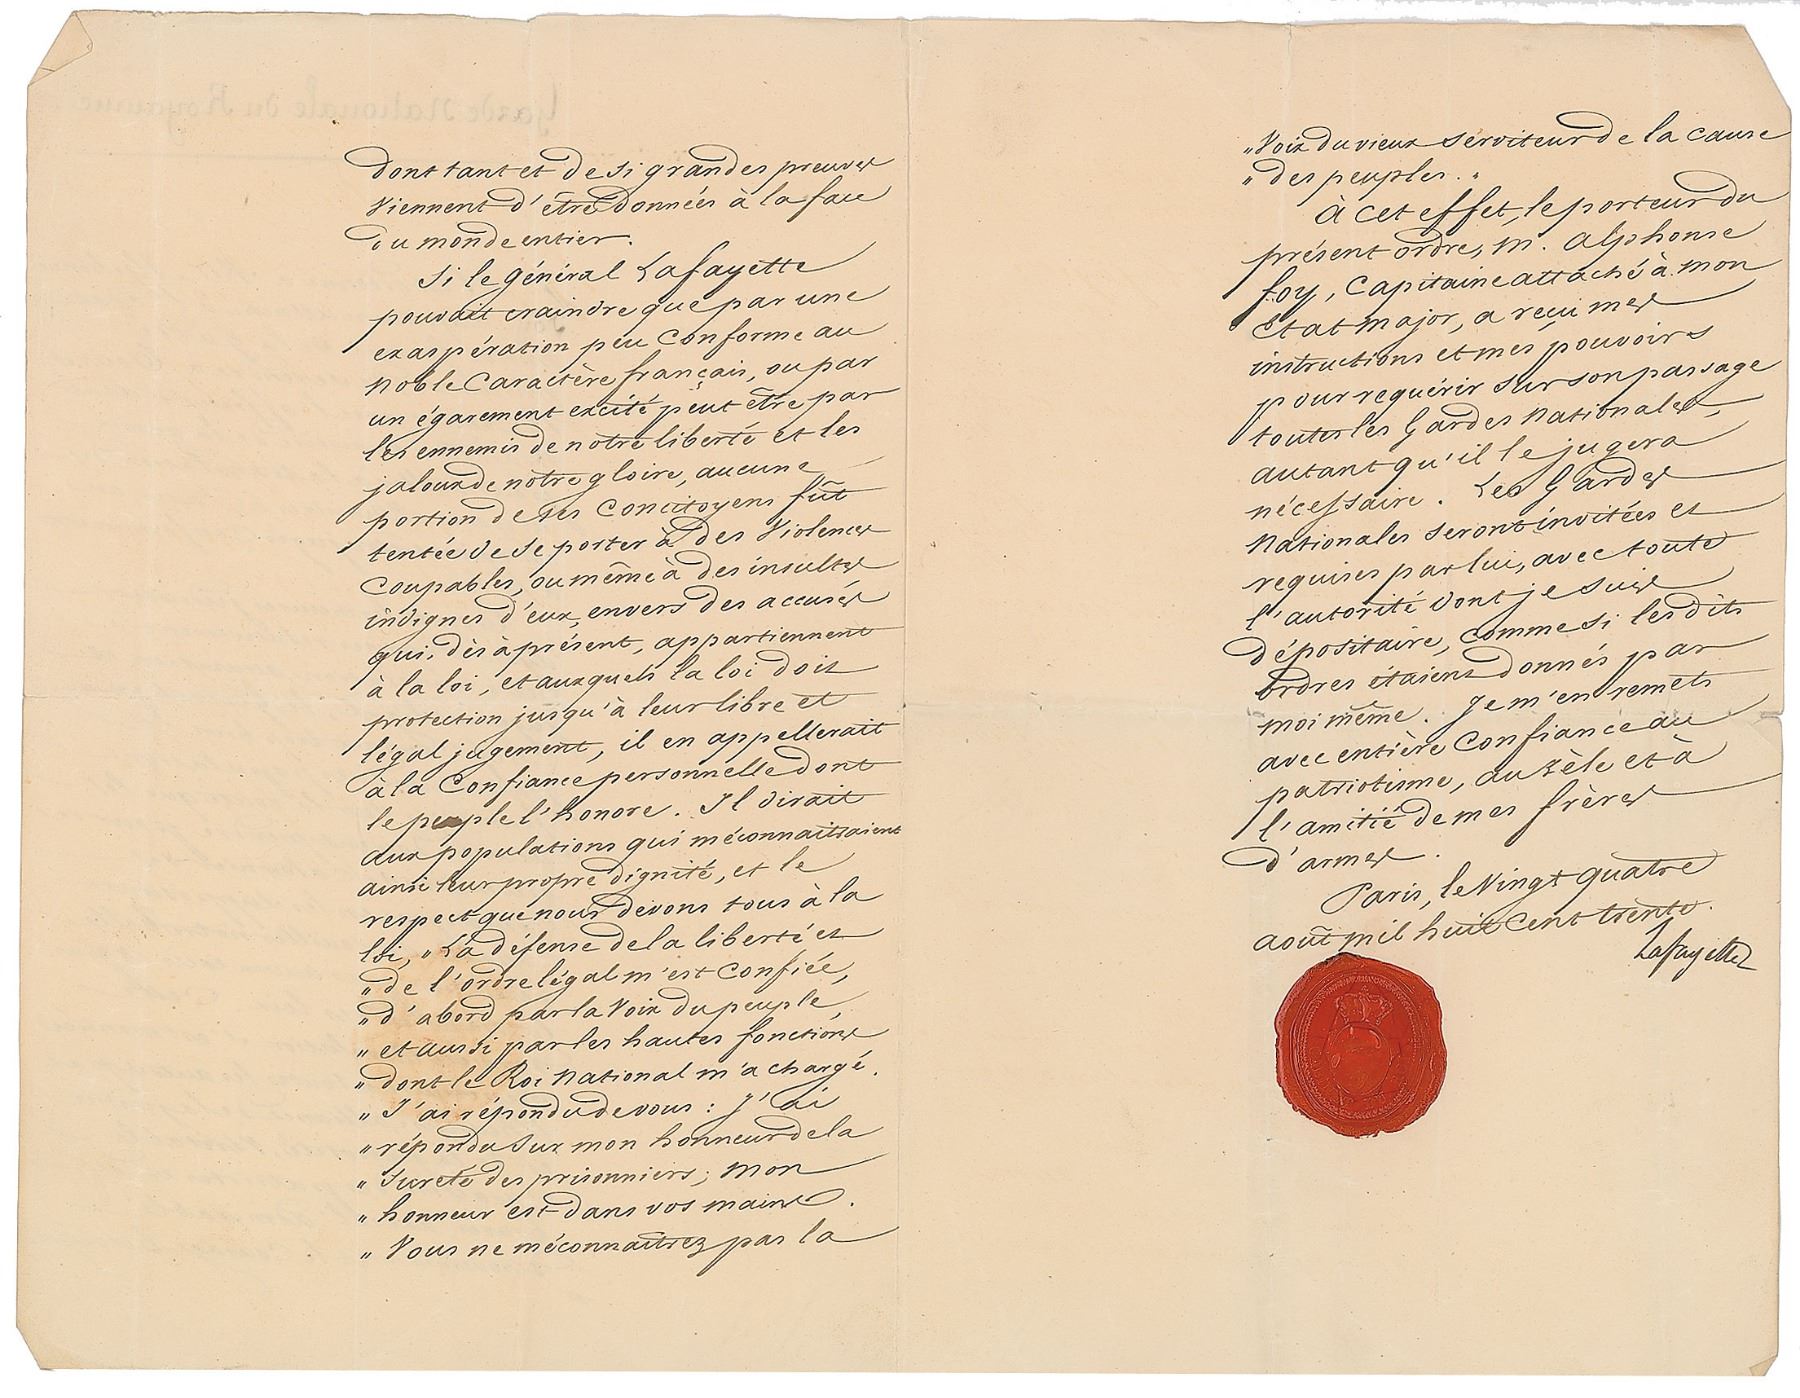 dont tant et de si grandes preuves
viennent d'être données à la face
du monde entier.
Si le général Lafayette
pouvait craindre que par une
exaspération peu conforme au
noble caractère français, ou par
un égarement excité peut être par
les ennemis de notre liberté et les
jaloux de notre gloire, aucune
portion de ses concitoyens fût
tentée de se porter à des violences
coupables, ou même à des insultes
indignes d'eux, envers des accusés
qui, dès à présent, appartiennent
à la loi, et auxquels la loi doit
protection jusqu'à leur libre et
légal jugement, il en appellerait
à la confiance personnelle dont
le peuple l'honore. Il dirait
aux populations qui méconnaitraient
ainsi leur propre dignité, et le
respect que nous devons tous à la
loi, „ La défense de la liberté et
„ de l'ordre légal m'est confiée,
„ d'abord par la voix du peuple,
„ et aussi par les hautes fonctions
„ dont le Roi National m'a chargé.
„ J'ai répondu de vous : j'ai
„ répondu sur mon honneur de la
„ sureté des prisonniers; mon
„ honneur est dans vos mains.
„ Vous ne méconnaîtrez pas la
„ voix du vieux serviteur de la cause
„ des peuples. „
À cet effet, le porteur du
présent ordre, M. Alphonse
foy, Capitaine attaché à mon
état major, a reçu mes
instructions et mes pouvoirs
pour requérir sur son passage
toutes les Gardes Nationales,
autant qu'il le jugera
nécessaire. Les Gardes
Nationales seront invitées et
requises par lui, avec toute
l'autorité dont je suis
dépositaire, comme si les dits
ordres étaient donnés par
moi même. Je m'en remets
avec entière confiance au
patriotisme, au zèle et à
l'amitié de mes frères
d'armes.
Paris, le Vingt quatre
août mil huit cent trente.
Lafayette